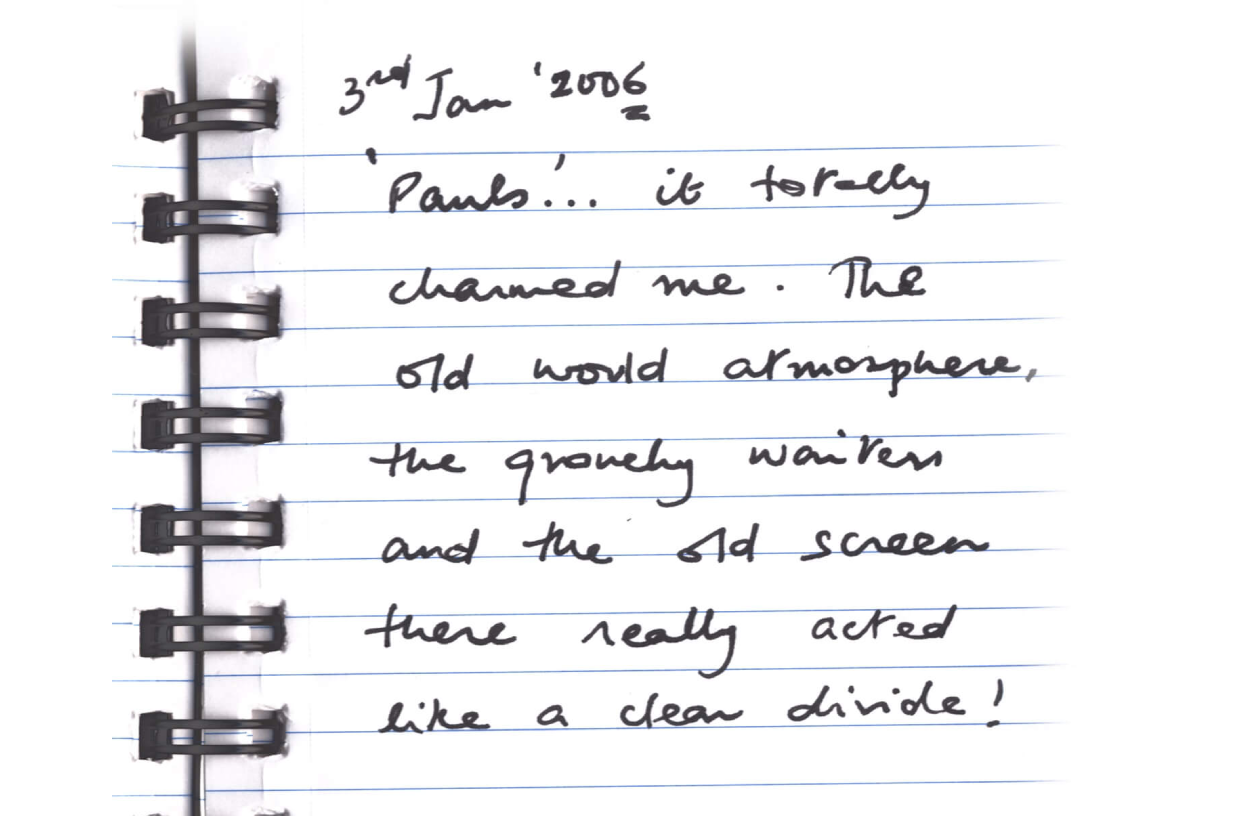 3rd Jan '2006
'Pauls'... it totally
charmed me. The
old would atmosphere,
the grouchy waiters
and the old screen
there really acted
like a clear divide!